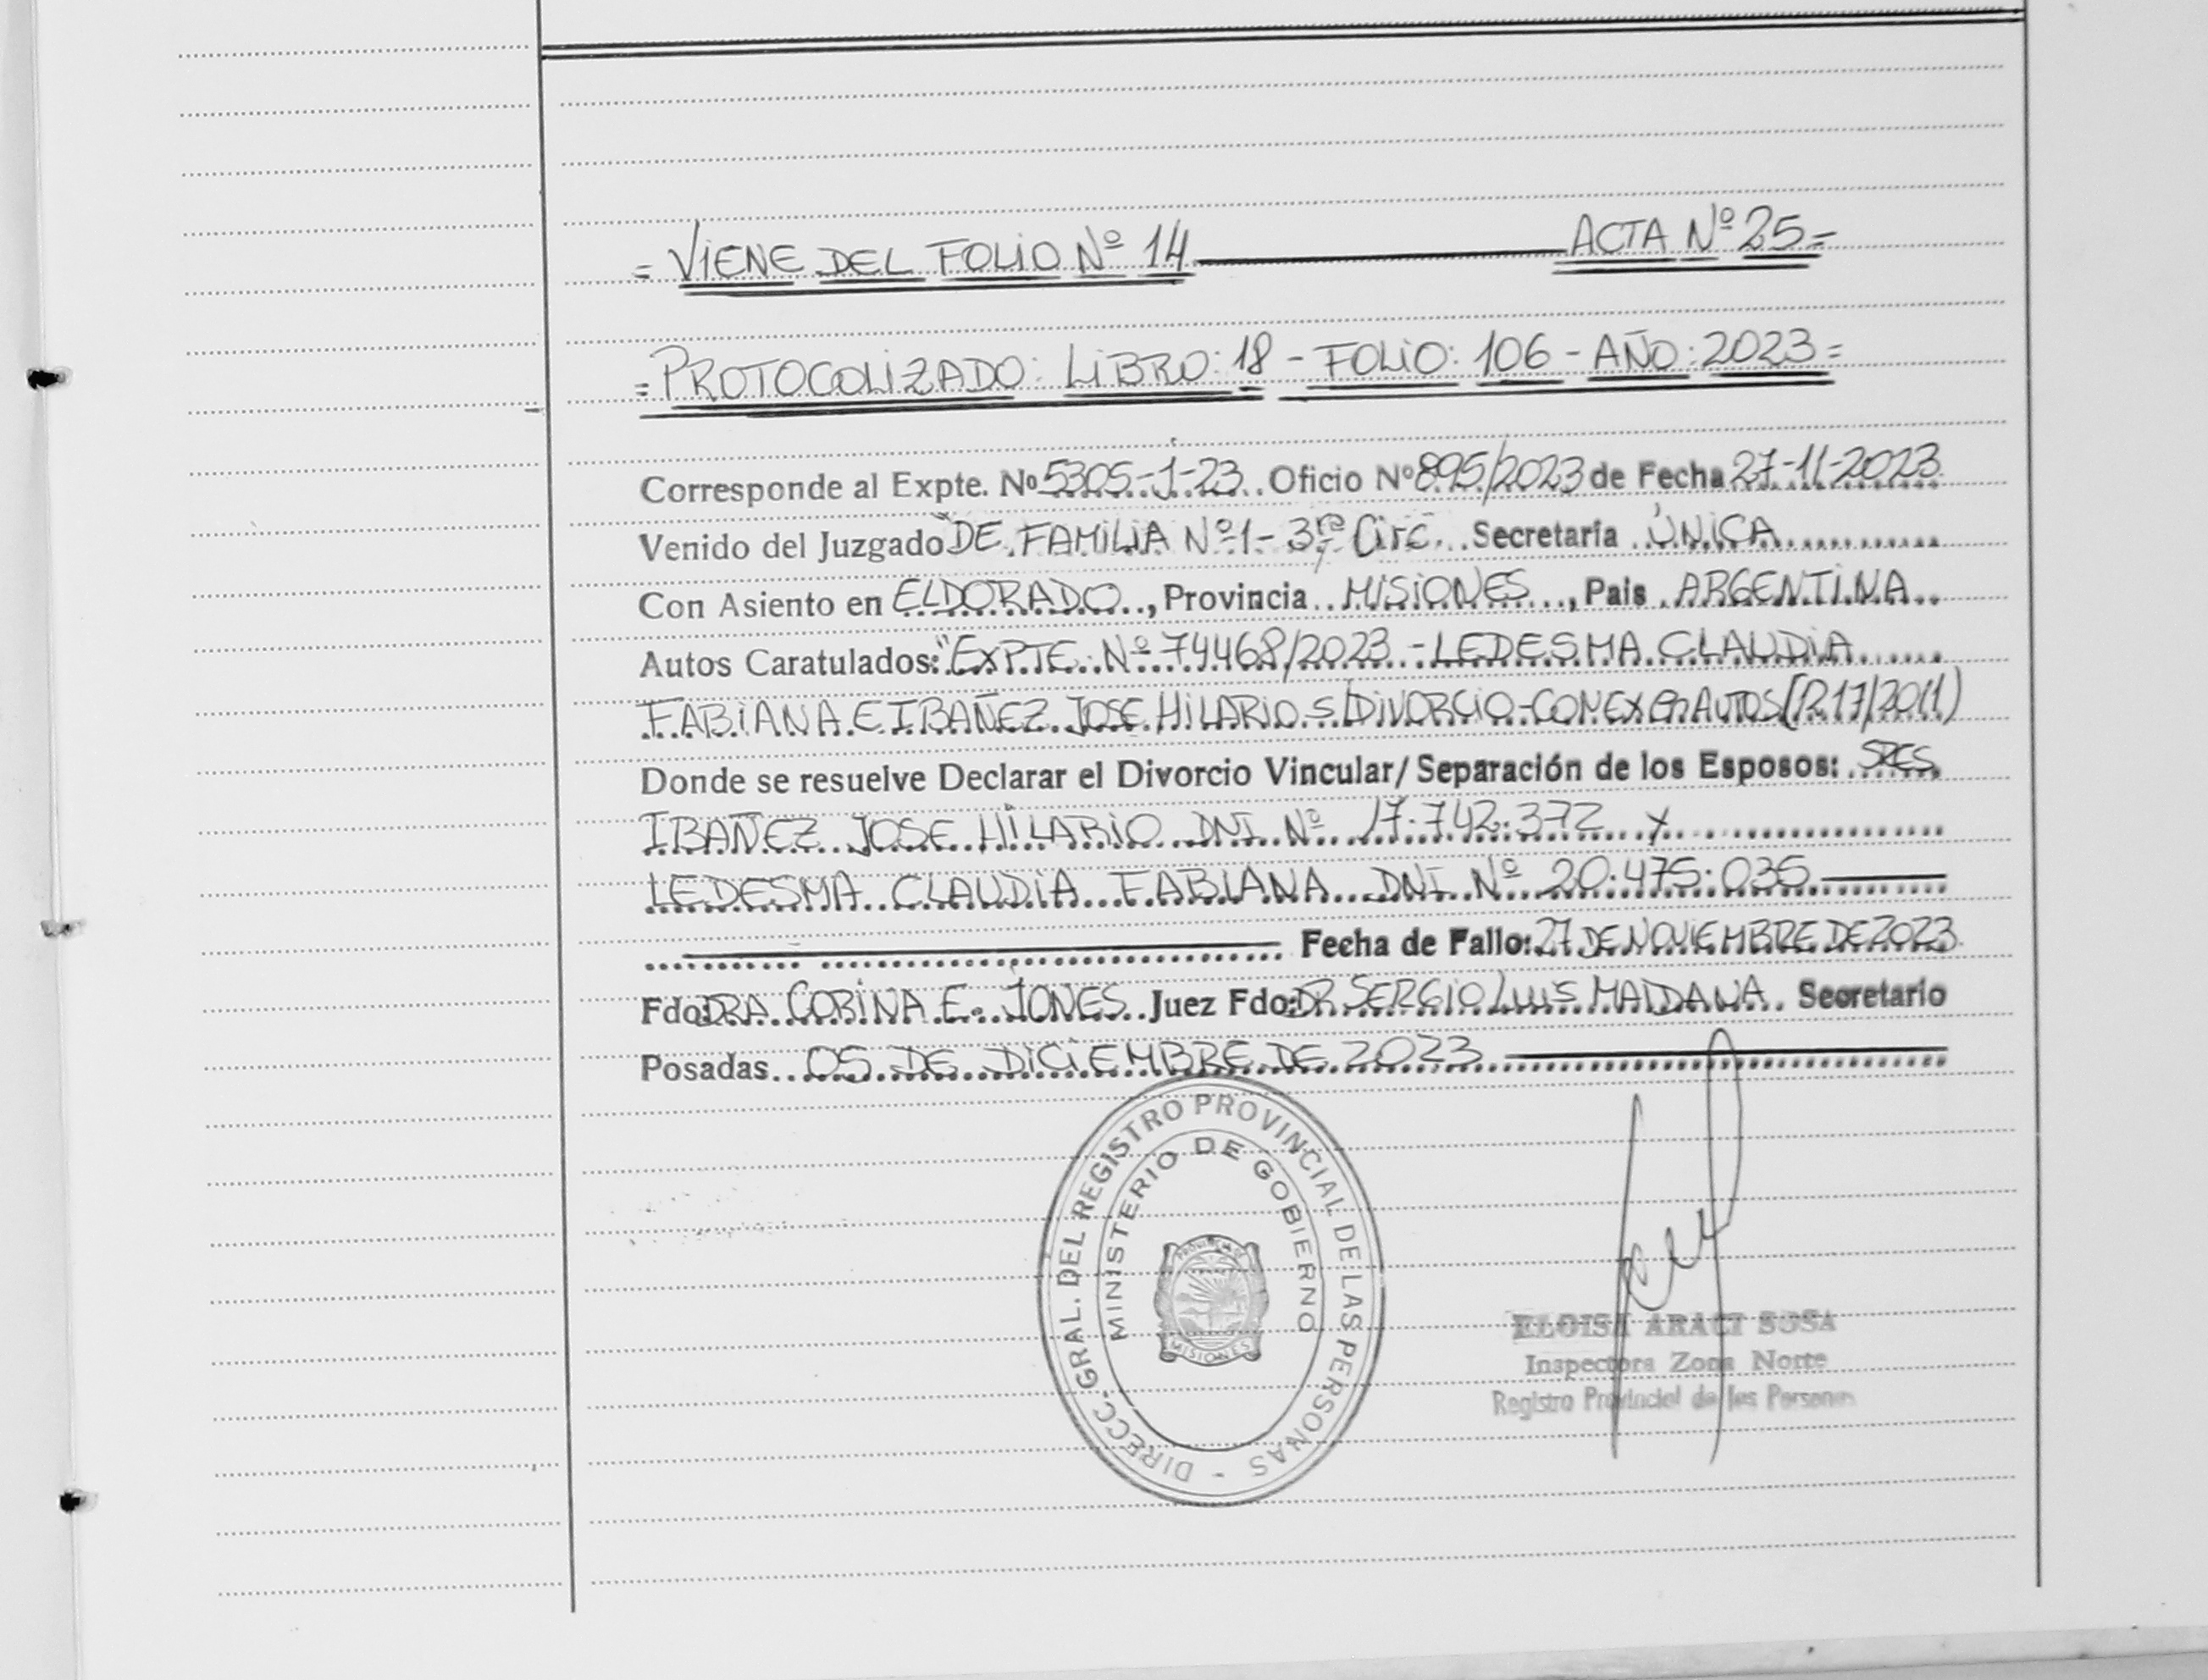 = VIENE DEL FOLIO Nº 14 ACTA Nº 25 =
= PROTOCOLIZADO: LIBRO: 18 - FOLIO: 106 - AÑO: 2023 =
Corresponde al Expte. Nº 5305-J-23 Oficio Nº 895/2023 de Fecha 27-11-2023
Venido del Juzgado DE FAMILIA Nº 1 - 3ra Circ. Secretaría ÚNICA
Con Asiento en ELDORADO, Provincia MISIONES, País ARGENTINA
Autos Caratulados: "EXPTE. Nº 74468/2023 - LEDESMA CLAUDIA
FABIANA E IBAÑEZ JOSE HILARIO S/DIVORCIO - CONEX en AUTOS (1217/2011)
Donde se resuelve Declarar el Divorcio Vincular/Separación de los Esposos: SRES
IBAÑEZ JOSE HILARIO DNI Nº 17.742.372 y
LEDESMA CLAUDIA FABIANA DNI Nº 20.475.035
Fecha de Fallo: 27 DE NOVIEMBRE DE 2023
Fdo: DRA CORINA E. JONES Juez Fdo: DR SERGIO LUIS MAIDANA Secretario
Posadas 05 DE DICIEMBRE DE 2023
DIRECC. GRAL. DEL REGISTRO PROVINCIAL DE LAS PERSONAS -
MINISTERIO DE GOBIERNO
PROVINCIA DE
MISIONES
ELOISA ARACI SOSA
Inspectora Zona Norte
Registro Provincial de las Personas